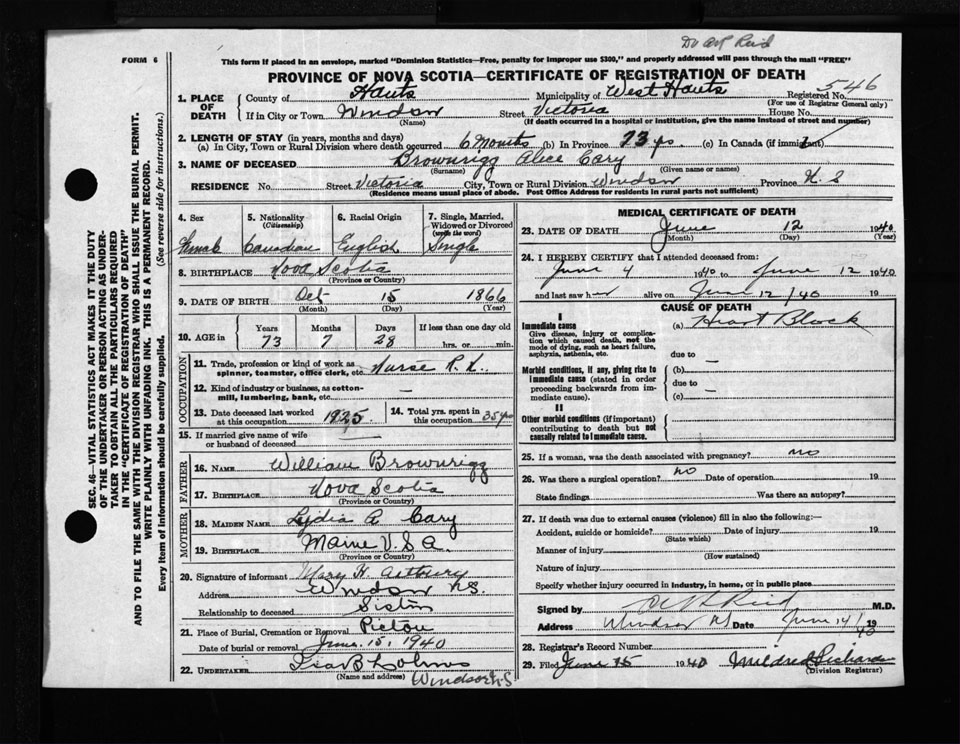 Reid
FORM 6
This form if placed in an envelope, marked "Dominion Statistics—Free, penalty for improper use $300," and properly addressed will pass through the mail "FREE"
PROVINCE OF NOVA SCOTIA—CERTIFICATE OF REGISTRATION OF DEATH
546
1. PLACE OF DEATH County of Hants Municipality of West Hants Registered No.
(For use of Registrar General only)
If in City or Town Windsor Street Victoria House No.
(Name) (If death occurred in a hospital or institution, give the name instead of street and number)
2. LENGTH OF STAY (in years, months and days)
(a) In City, Town or Rural Division where death occurred 6 Months (b) In Province 73 yrs (c) In Canada (if immigrant)
3. NAME OF DECEASED Brownrigg Alice Cary
(Surname) (Given name or names)
RESIDENCE No. Street Victoria City, Town or Rural Division Windsor Province N. S
(Residence means usual place of abode. Post Office Address for residents in rural parts not sufficient)
4. Sex 5. Nationality (Citizenship) 6. Racial Origin 7. Single, Married, Widowed or Divorced (write the word)
Female Canadian English Single
8. BIRTHPLACE Nova Scotia
(Province or Country)
9. DATE OF BIRTH Oct 15 1866
(Month) (Day) (Year)
10. AGE in Years Months Days If less than one day old
73 7 28 hrs. or min.
OCCUPATION
11. Trade, profession or kind of work as spinner, teamster, office clerk, etc. Nurse R. N.
12. Kind of industry or business, as cotton-mill, lumbering, bank, etc. —
13. Date deceased last worked at this occupation 1925 14. Total yrs. spent in this occupation 35 yrs
15. If married give name of wife or husband of deceased
FATHER
16. NAME William Brownrigg
17. BIRTHPLACE Nova Scotia
(Province or Country)
MOTHER
18. MAIDEN NAME Lydia A Cary
19. BIRTHPLACE Maine U. S A.
(Province or Country)
20. Signature of informant Mary H.
Address Windsor N.S.
Relationship to deceased Sister
21. Place of Burial, Cremation or Removal Pictou
Date of burial or removal June 15, 1940
22. UNDERTAKER
(Name and address) Windsor N.S
MEDICAL CERTIFICATE OF DEATH
23. DATE OF DEATH June 12 1940
(Month) (Day) (Year)
24. I HEREBY CERTIFY that I attended deceased from:
June 4 1940 to June 12 1940
and last saw her alive on June 12/40 19
CAUSE OF DEATH
I
Immediate cause (a) Heart Block
Give disease, injury or complication which caused death, not the mode of dying, such as heart failure, asphyxia, asthenia, etc.
due to —
Morbid conditions, if any, giving rise to immediate cause (stated in order proceeding backwards from immediate cause). (b)
due to —
(c)
II
Other morbid conditions (if important) contributing to death but not causally related to immediate cause.
25. If a woman, was the death associated with pregnancy? no
26. Was there a surgical operation? no Date of operation 19
State findings Was there an autopsy?
27. If death was due to external causes (violence) fill in also the following:—
Accident, suicide or homicide? Date of injury 19
(State which)
Manner of injury
(How sustained)
Nature of injury
Specify whether injury occurred in industry, in home, or in public place
Signed by Reid M.D.
Address Windsor NS Date June 14/40 19
28. Registrar's Record Number
29. Filed June 15 1940 Mildred
(Division Registrar)
SEC. 46—VITAL STATISTICS ACT MAKES IT THE DUTY
OF THE UNDERTAKER OR PERSON ACTING AS UNDER-
TAKER TO OBTAIN ALL THE PARTICULARS REQUIRED
IN THE "CERTIFICATE OF REGISTRATION OF DEATH"
AND TO FILE THE SAME WITH THE DIVISION REGISTRAR WHO SHALL ISSUE THE BURIAL PERMIT.
WRITE PLAINLY WITH UNFADING INK. THIS IS A PERMANENT RECORD.
Every item of information should be carefully supplied. (See reverse side for instructions.)